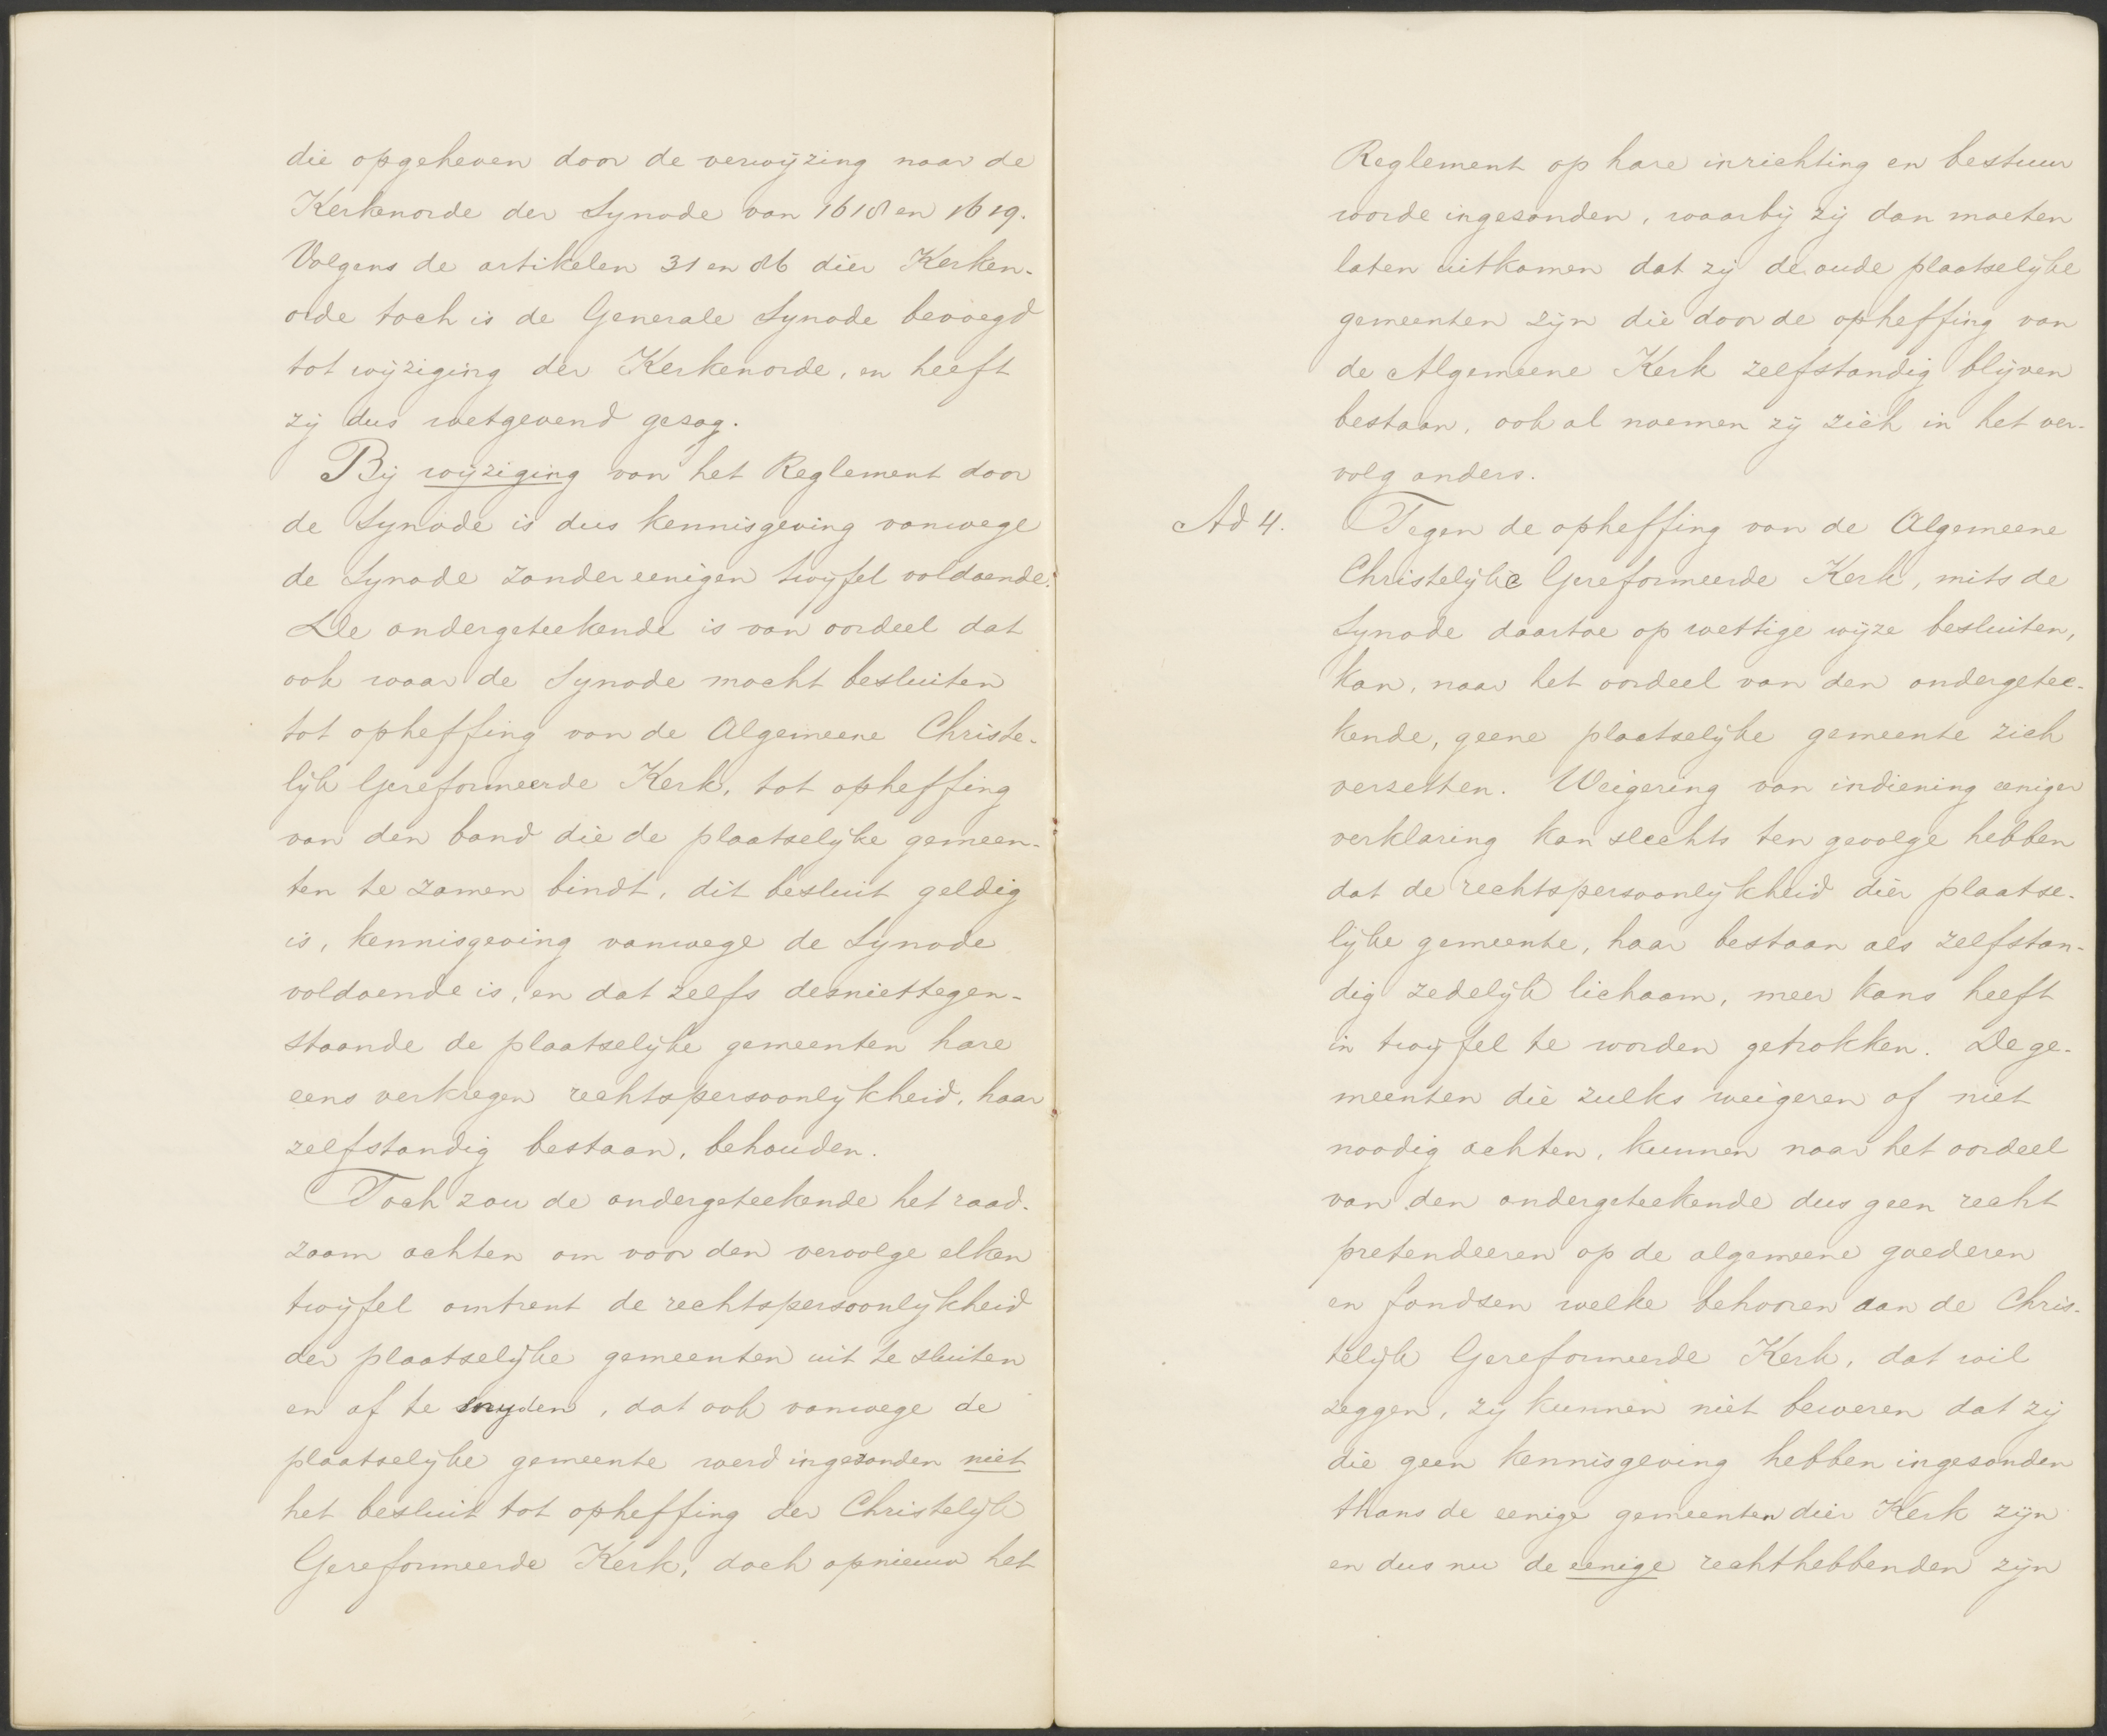 die opgeheven door de verwijzing naar de
Kerkenorde der Synode van 1618 en 1619.
Volgens de artikelen 31 en 86 dier Kerken-
orde toch is de Generale Synode bevoegd
tot wijziging der Kerkenorde, en heeft
zij dus wetgevend gezag.
Bij wijziging van het Reglement door
de Synode is dus kennisgeving vanwege
de Synode zonder eenigen twijfel voldoende.
De ondergeteekende is van oordeel dat
ook waar de Synode mocht besluiten
tot opheffing van de Algemeene Christe-
lijk Gereformeerde Kerk, tot opheffing
van den band die de plaatselijke gemeen-
ten te zamen bindt, dit besluit geldig
is, kennisgeving vanwege de Synode
voldoende is, en dat zelfs desniettegen-
staande de plaatselijke gemeenten hare
eens verkregen rechtspersoonlijkheid, haar
zelfstandig bestaan, behouden.
Toch zou de ondergeteekende het raad-
zaam achten om voor den vervolge elken
twijfel omtrent de rechtspersoonlijkheid
der plaatselijke gemeenten uit te sluiten
en af te snyden, dat ook vanwege de
plaatselijke gemeente werd ingezonden niet
het besluit tot opheffing der Christelijk
Gereformeerde Kerk, doch opnieuw het
Reglement op hare inrichting en bestuur
worde ingezonden, waarbij zij dan moeten
laten uitkomen dat zij de oude plaatselijke
gemeenten zijn die door de opheffing van
de Algemeene Kerk zelfstandig blijven
bestaan, ook al noemen zij zich in het ver-
volg anders.
Ad 4. Tegen de opheffing van de Algemeene
Christelijke Gereformeerde Kerk, mits de
Synode daartoe op wettige wijze besluiten,
kan, naar het oordeel van den ondergetee-
kende, geene plaatselijke gemeente zich
verzetten. Weigering van indiening eeniger
verklaring kan slechts ten gevolge hebben
dat de rechtspersoonlijkheid dier plaatse-
lijke gemeente, haar bestaan als zelfstan-
dig zedelijk lichaam, meer kans heeft
in twijfel te worden getrokken. De ge-
meenten die zulks weigeren of niet
noodig achten, kunnen naar het oordeel
van den ondergeteekende dus geen recht
pretendeeren op de algemeene goederen
en fondsen welke behooren aan de Chris-
telijk Gereformeerde Kerk, dat wil
zeggen, zij kunnen niet beweren dat zij
die geen kennisgeving hebben ingezonden
thans de eenige gemeenten dier Kerk zijn
en dus nu de eenige rechthebbenden zijn